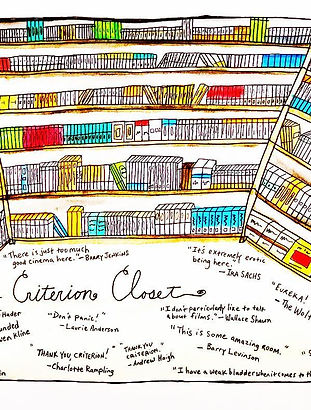 "There is just too much
good cinema here." – BARRY JENKINS
"It's extremely erotic
being here." – IRA SACHS
"EUREKA!
– The Wolf
Criterion Closet
Hader
"Don't panic!"
– Laurie Anderson
"I don't particularly like to talk
about films." – Wallace Shawn
Kline
"This is some amazing room."
– Barry Levinson
"THANK YOU, CRITERION!"
– Charlotte Rampling
"THANK YOU
CRITERION."
– Andrew Haigh
"I have a weak bladder when it comes to th